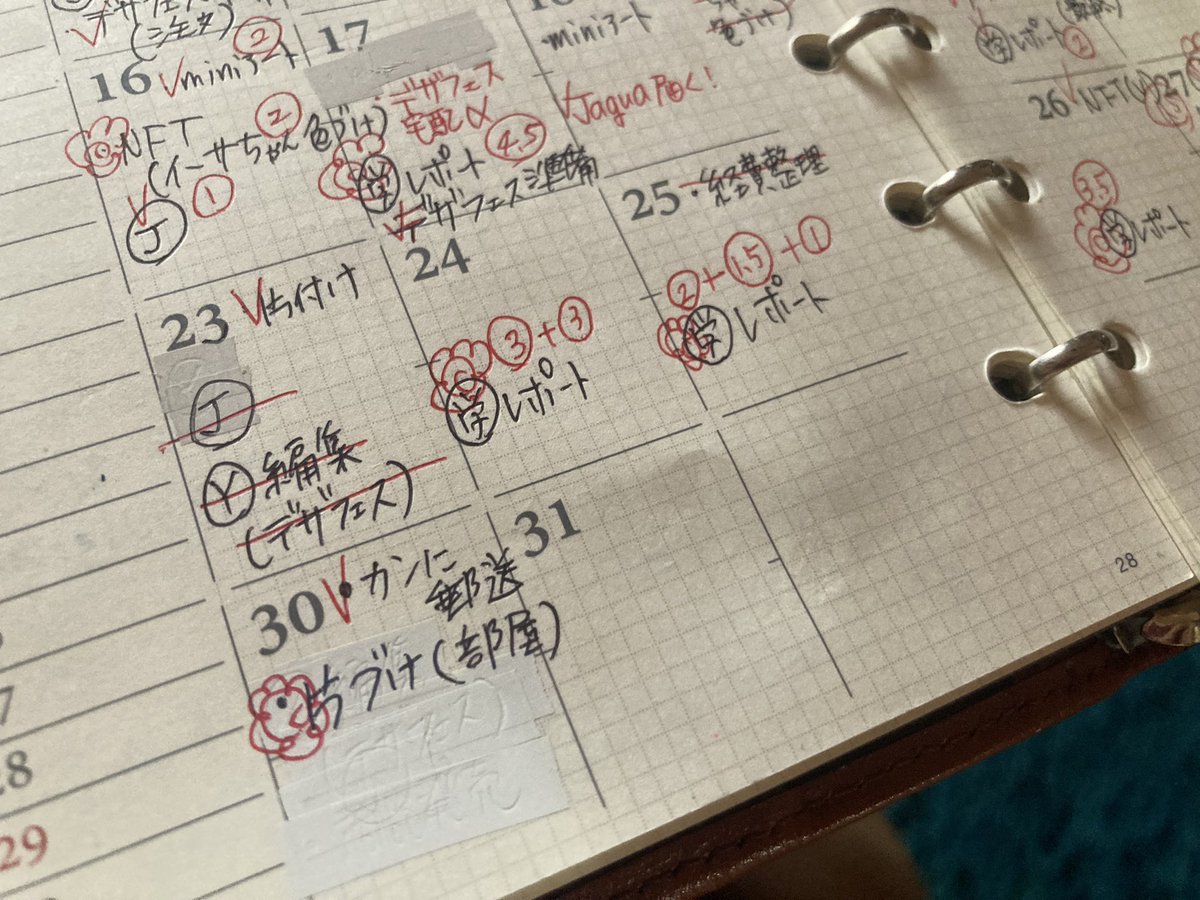 デザフェス
(注文)
②
16 ✓miniアート
NFT ②
(イーサちゃん色づけ)
✓ ①
Ⓙ
17
デザフェス
宅配〆
4.5
学 レポート
✓デザフェス準備
miniアート
色づけ)
✓Jagua届く!
学 レポート ②
26 ✓NFT
27
3.5
学 レポート
23 ✓片付け
Ⓙ
Ⓨ編集
(デザフェス)
24
③+③
学 レポート
25 ・経費整理
②+1.5+①
学 レポート
30 ✓・カンに
郵送
・片づけ(部屋)
31
28
7
28
29